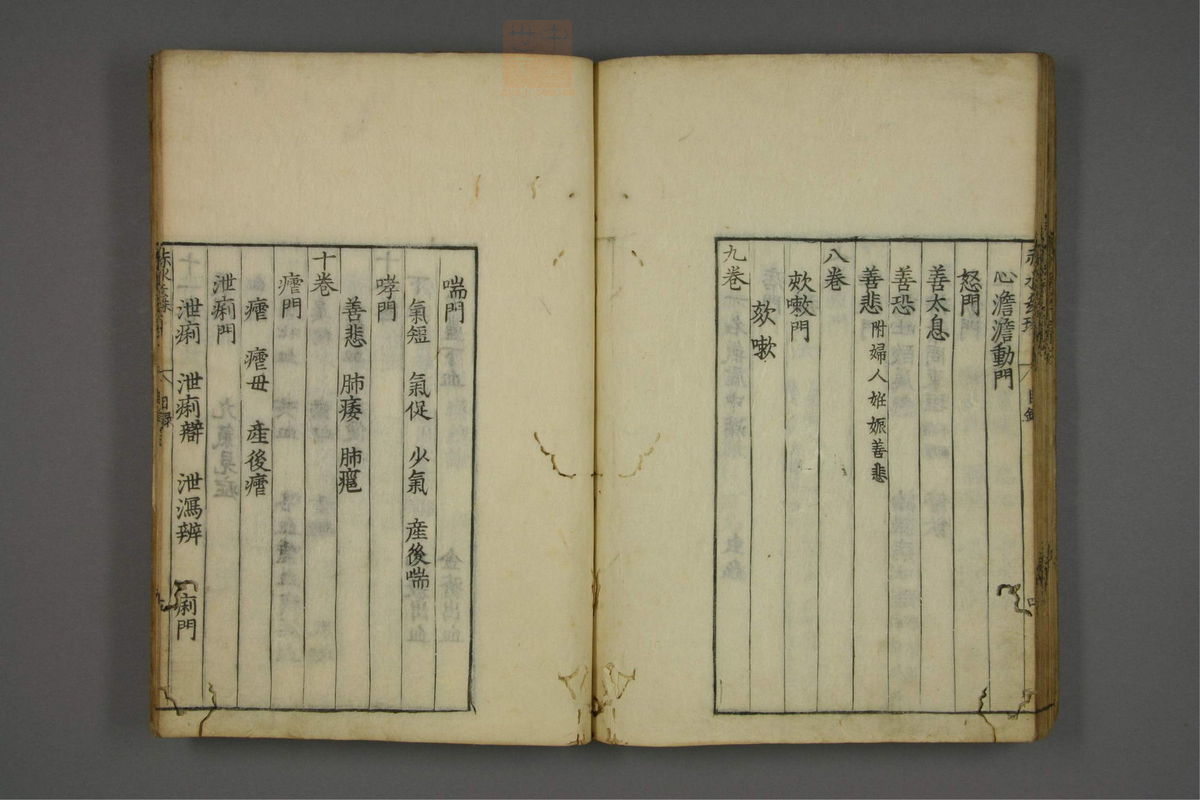 心澹澹動門
怒門
善太息
善恐
善悲附婦人姙娠善悲
八巻
欬嗽門
欬嗽
九巻
喘門
氣短 氣促 少氣 産後喘
哮門
善悲 肺痿 肺
十巻
瘧門
瘧 瘧母 産後瘧
泄痢門
泄痢 泄痢辯 泄瀉辨 痢門